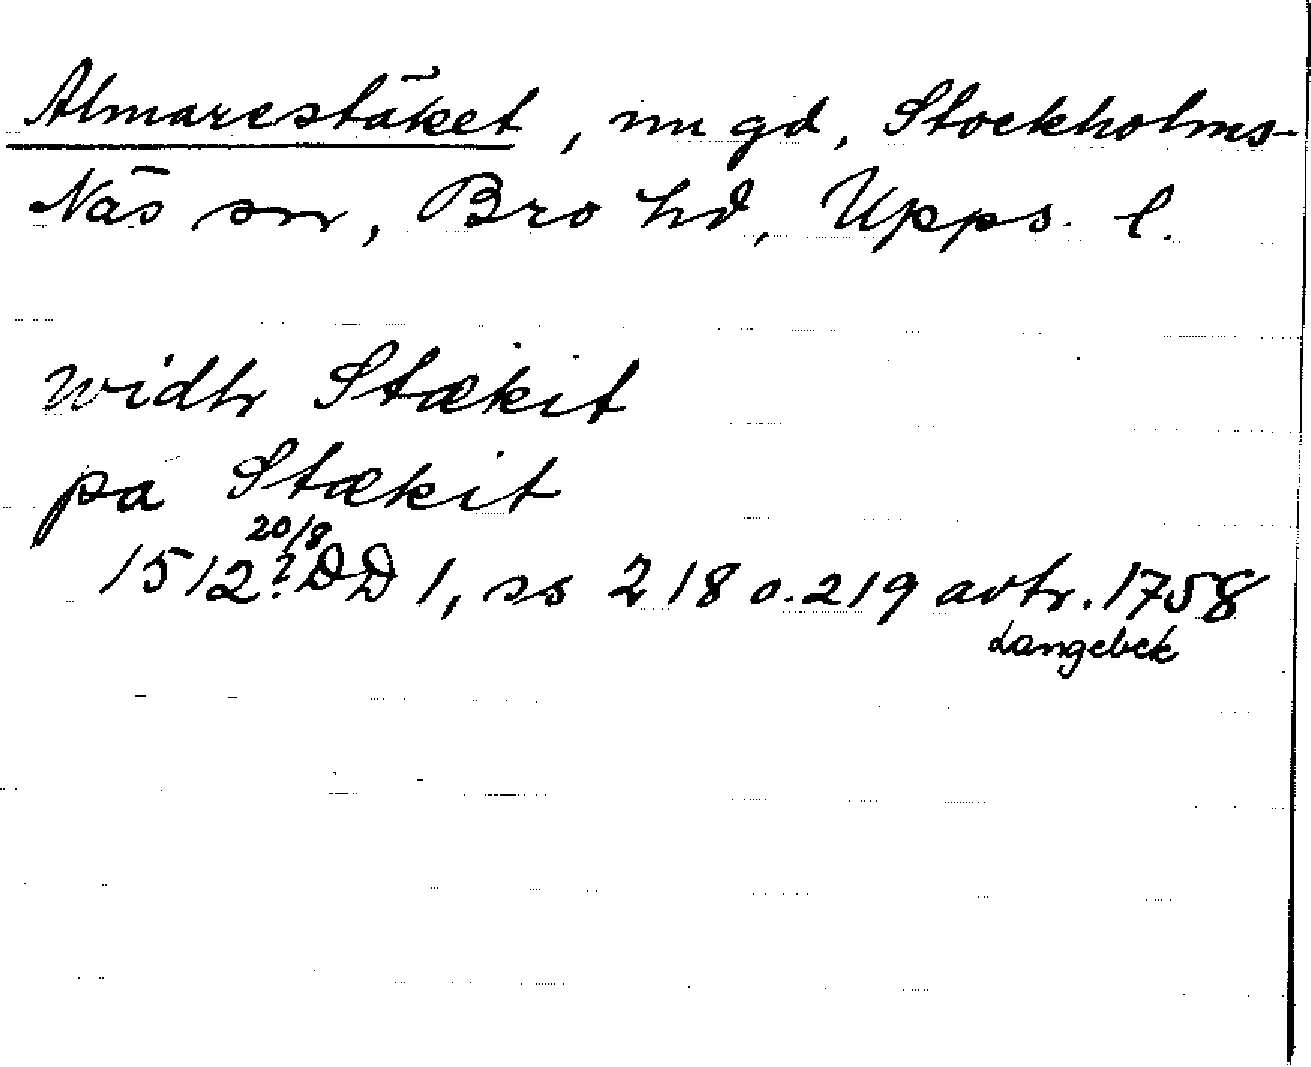 Almarestäket, nu gd, Stockholms-
Näs sn, Bro hd, Upps. l.
widhr Stækit
pa Stækit
20/8
1512? DD 1, ss 218 o. 219 avtr. 1758
Langebek